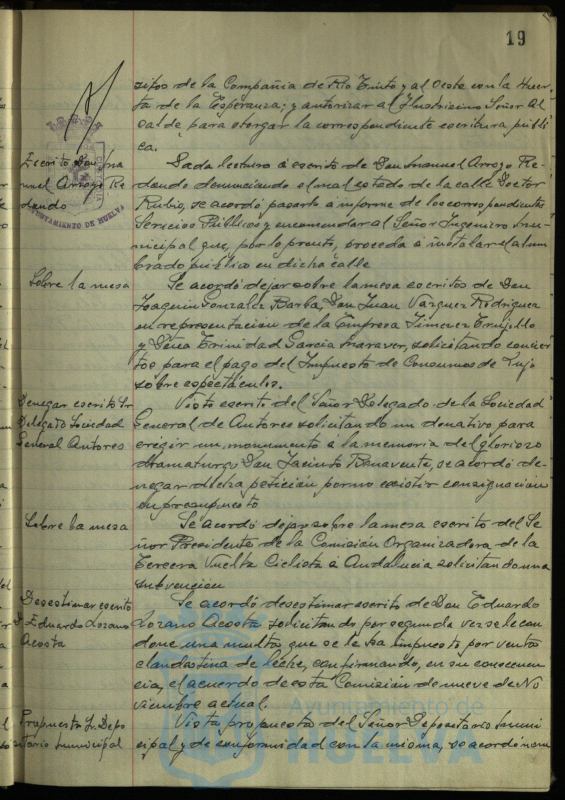 19
sitos de la Compañia de Rio Tinto y al Oeste con la Huer-
ta de la Esperanza; y autorizar al Ilustrisimo Señor Al
calde, para otorgar la correspondiente escritura públi
ca.
Escrito Don Ma
nuel Arroyo Re
dondo
AYUNTAMIENTO DE HUELVA
Dada lectura á escrito de Don Manuel Arroyo Re-
dondo denunciando el mal estado de la calle Doctor
Rubio, se acordó pasarlo á informe de los correspondientes
Servicios Públicos y encomendar al Señor Ingeniero Mu-
nicipal que, por lo pronto, proceda á instalar el alum
brado público en dicha calle
Sobre la mesa
Se acordó dejar sobre la mesa escritos de Don
Joaquin Gonzalez Barba, Don Juan Vazquez Rodriguez
en representación de la Empresa Jimenez Trujillo
y Doña Trinidad Garcia Naraver, solicitando concier
tos para el pago del Impuesto de Consumos de Lujo
sobre espectáculos.
Denegar escrito Sr
Delegado Sociedad
General Autores
Visto escrito del Señor Delegado de la Sociedad
General de Autores solicitando un donativo para
erigir un monumento á la memoria del glorioso
dramaturgo Don Jacinto Benavente, se acordó de-
negar dicha petición por no existir consignación
en presupuesto
Sobre la mesa
Se acordó dejar sobre la mesa escrito del Se
ñor Presidente de la Comisión Organizadora de la
Tercera Vuelta Ciclista á Andalucia solicitando una
subvención
Desestimar escrito
D. Eduardo Lozano
Acosta
Se acordó desestimar escrito de Don Eduardo
Lozano Acosta solicitando por segunda vez se le con
done una multa que se le ha impuesto por venta
clandestina de leche, confirmando, en su consecuen
cia, el acuerdo de esta Comisión de nueve de No
viembre actual.
Propuesta Sr. Depo
sitario Municipal
Vista propuesta del Señor Depositario Muni
cipal y de conformidad con la misma, se acordó nom
Ayuntamiento de
HUELVA